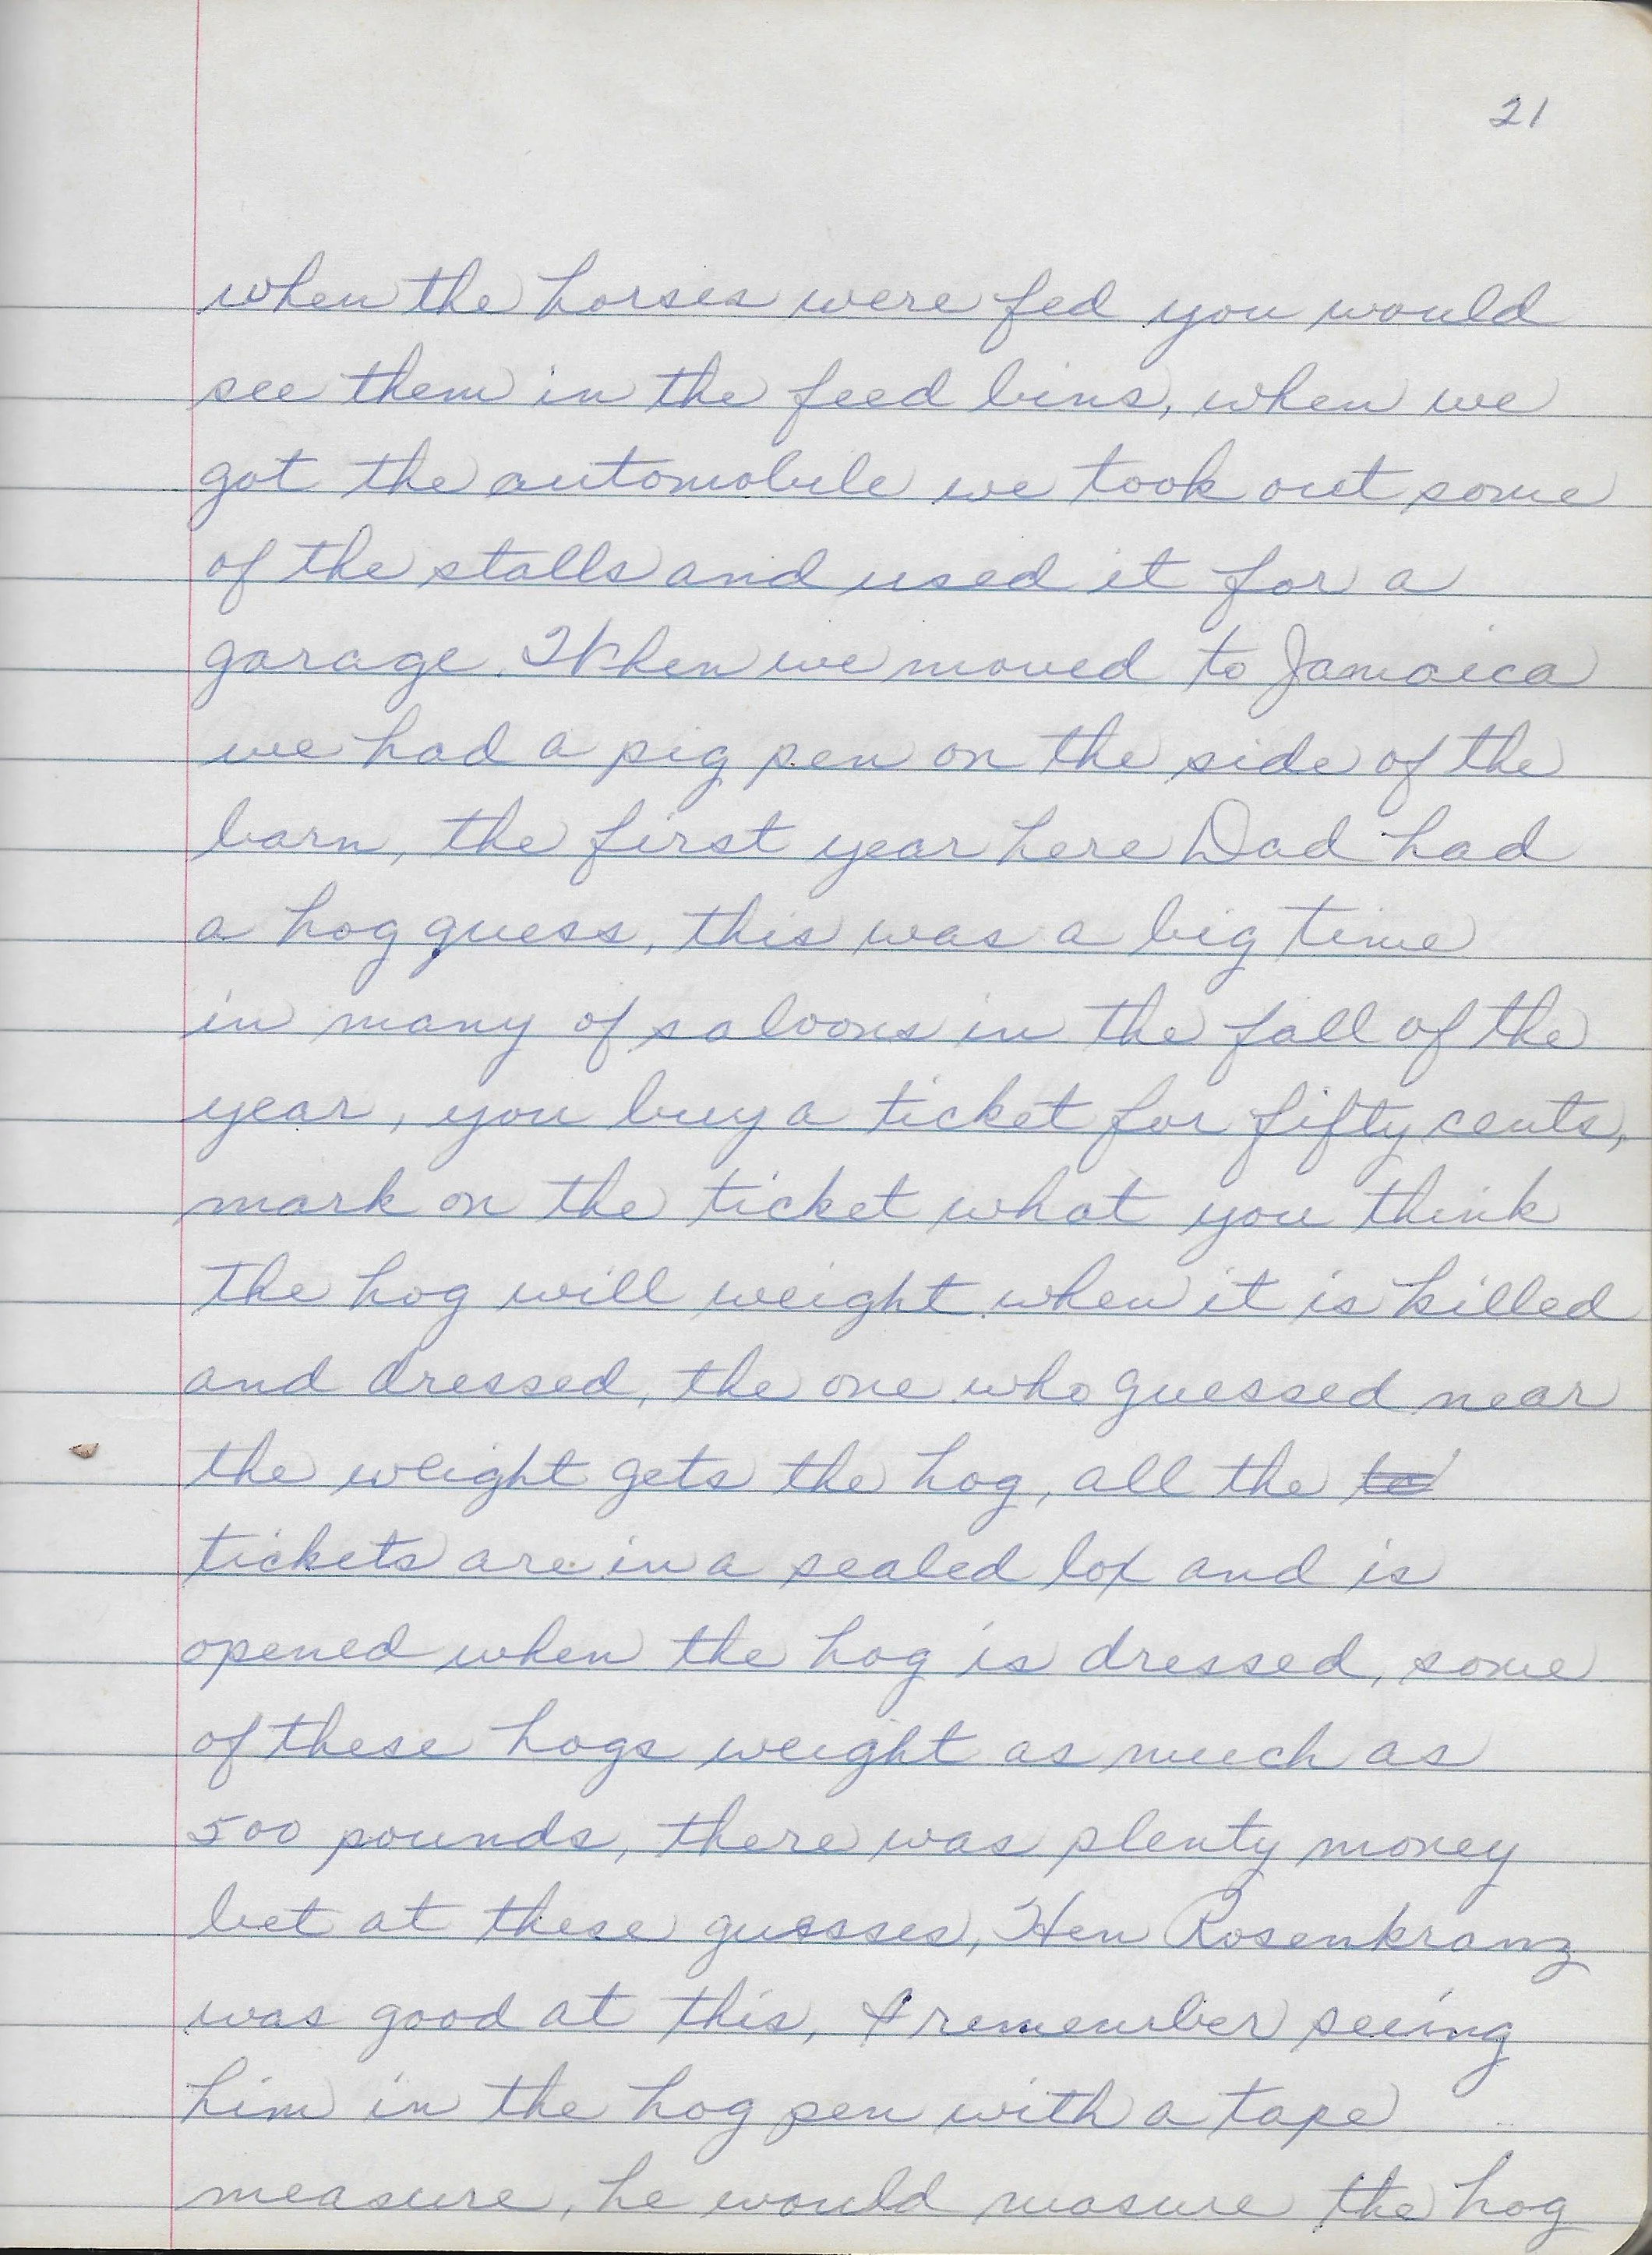 21
when the horses were fed you would
see them in the feed bins, when we
got the automobile we took out some
of the stalls and used it for a
garage. When we moved to Jamaica
we had a pig pen on the side of the
barn, the first year here Dad had
a hog guess, this was a big time
in many of saloons in the fall of the
year, you buy a ticket for fifty cents,
mark on the ticket what you think
the hog will weight when it is killed
and dressed, the one who guessed near
the weight gets the hog, all the to
tickets are in a sealed box and is
opened when the hog is dressed, some
of these hogs weight as much as
500 pounds, there was plenty money
bet at these guesses, Hen Rosenkranz
was good at this, I remember seeing
him in the hog pen with a tape
measure, he would masure the hog